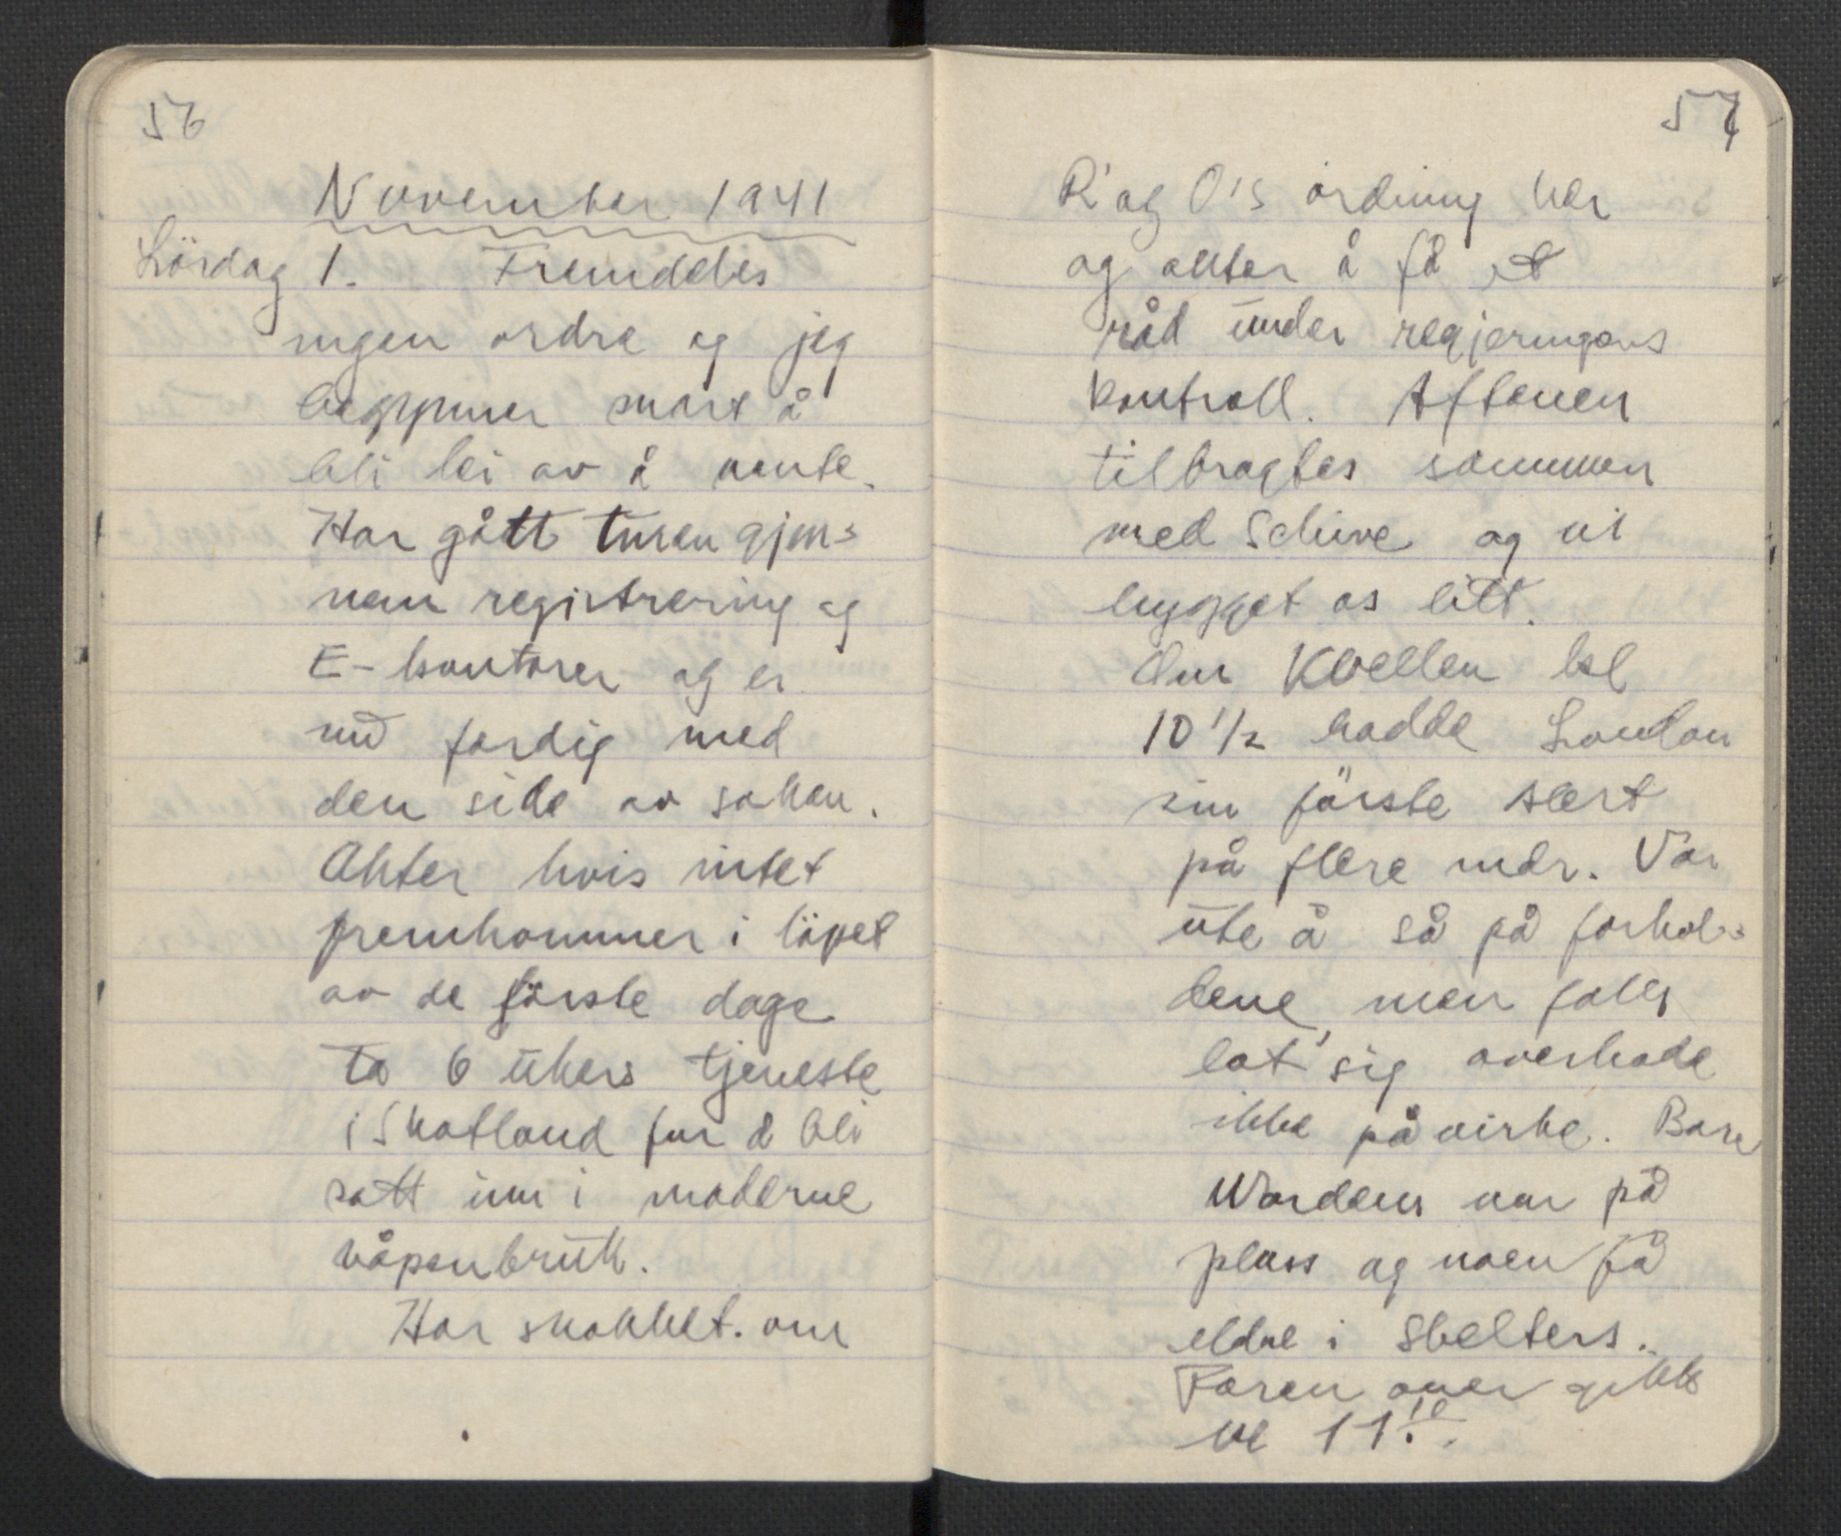 56
November 1941
Lördag 1. Fremdeles
ingen ordre og jeg
begynner snart å
bli lei av å vente.
Har gått turen gjen=
nem registrering og
E-kontorer og er
nå ferdig med
den side av saken.
Akter hvis intet
fremkommer i löpet
av de förste dage
ta 6 ukers tjeneste
i Skotland for å bli
satt inn i moderne
våpenbruk.
Har snakket om
57
R' og O's ordning her
og akter å få et
råd under regjeringens
kontroll. Aftenen
tilbragtes sammen
med Schive og vi
hygget os litt.
Om Kvellen kl
10 1/2 hadde London
sin förste alert
på flere mdr. Var
ute å så på forhol=
dene, men folk
lot sig overhode
ikke påvirke. Bare
Wardens var på
plass og noen få
eldre i shelters.
Faren over gikk
kl 11.10.